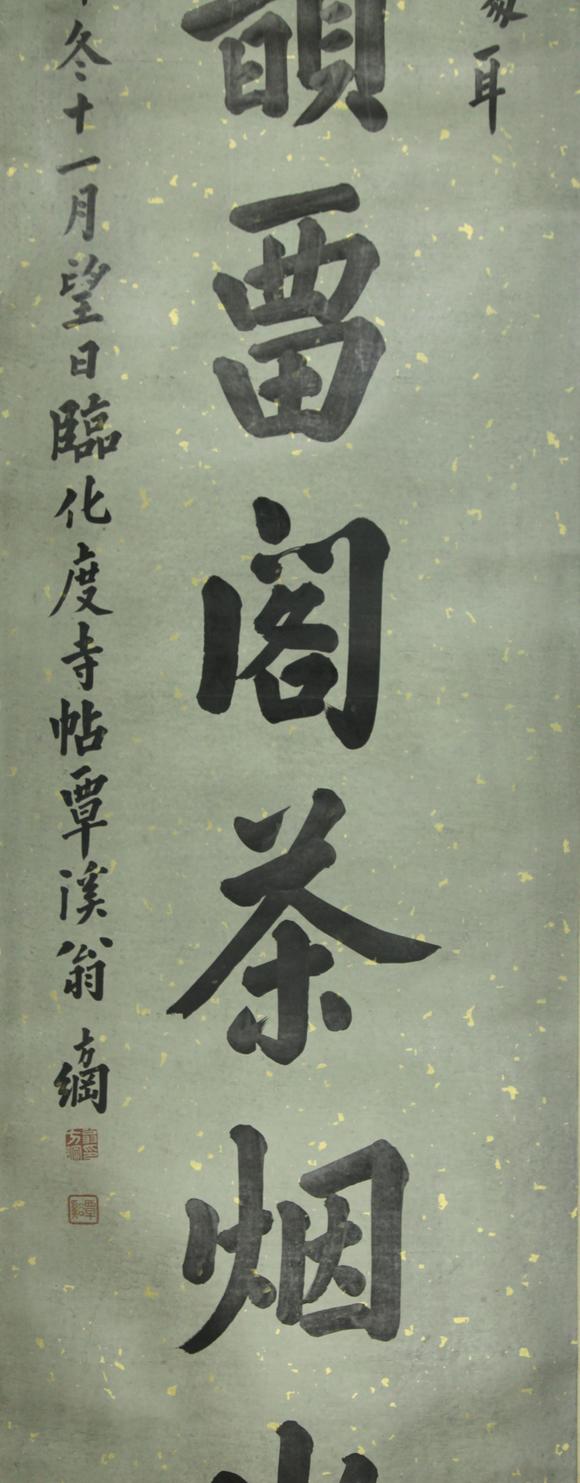 耳
韻畱閣茶烟
冬十一月望日臨化度寺帖覃溪翁方綱
覃谿